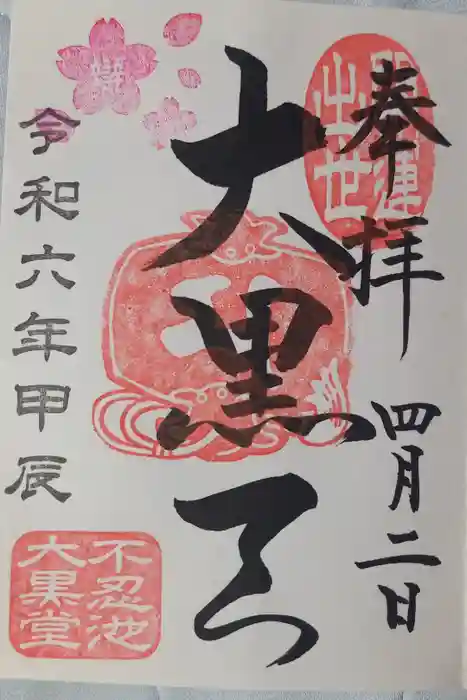 奉拝
四月二日
開運
出世
大黒天
令和六年甲辰
不忍池
大黒堂